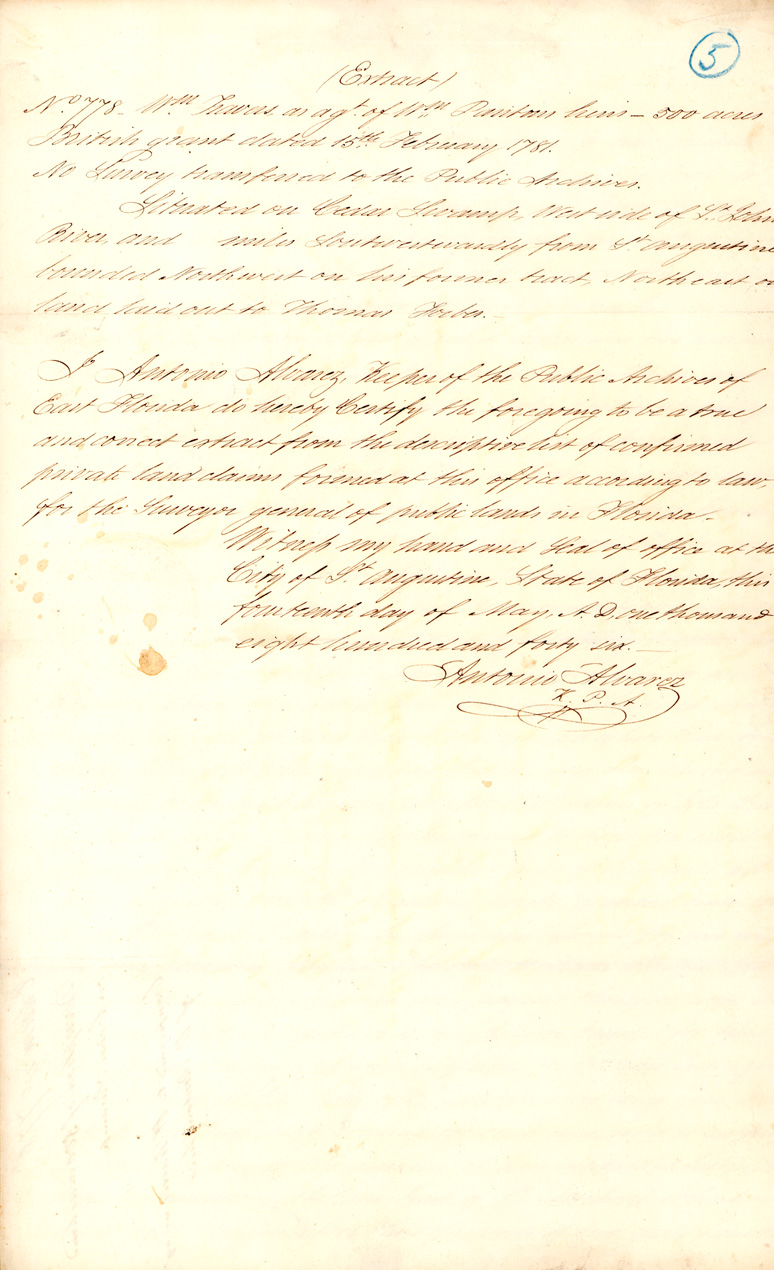 5
(Extract)
No. 778 – Wm. Travers as agt. of Wm. Panton's heirs – 500 acres
British grant dated 15th. February 1781.
No Survey transferred to the Public Archives.
Situated on Cedar Swamp, West side of St. John
River, and miles Southwestwardly from St. Augustine
bounded Northwest on his former tract, Northeast on
land laid out to Thomas Forbes. –
I Antonio Alvarez, Keeper of the Public Archives of
East Florida do hereby Certify the foregoing to be a true
and correct extract from the descriptive list of confirmed
private land claims formed at this office according to law,
for the Surveyor general of public lands in Florida –
Witness my hand and Seal of office at the
City of St. Augustine, State of Florida, this
fourteenth day of May, A. D. one thousand
eight hundred and forty six. –
Antonio Alvarez
K. P. A.